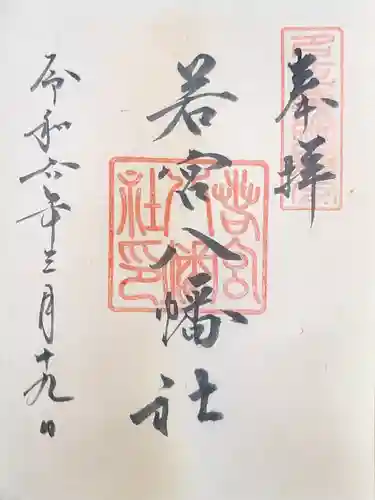 奉拝
若宮八幡社
若宮
八幡
社印
令和六年三月十九日